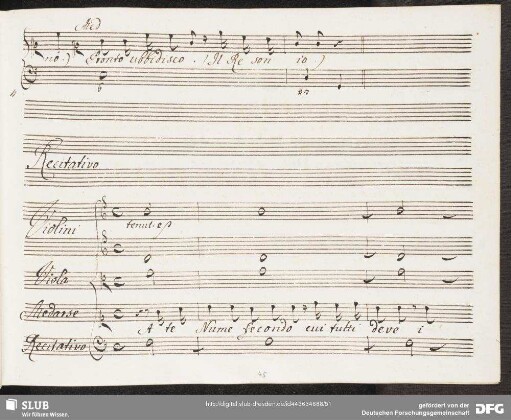 Med
no.) Pronto ubbidisco. (Il Re son io)
Recitativo
Violini
tenute p
Viola
Medarse
A te Nume fecondo cui tutti deve i
Recitativo
45
SLUB
Wir führen Wissen.
http://digital.slub-dresden.de/id443634688/51
gefördert von der
Deutschen Forschungsgemeinschaft
DFG